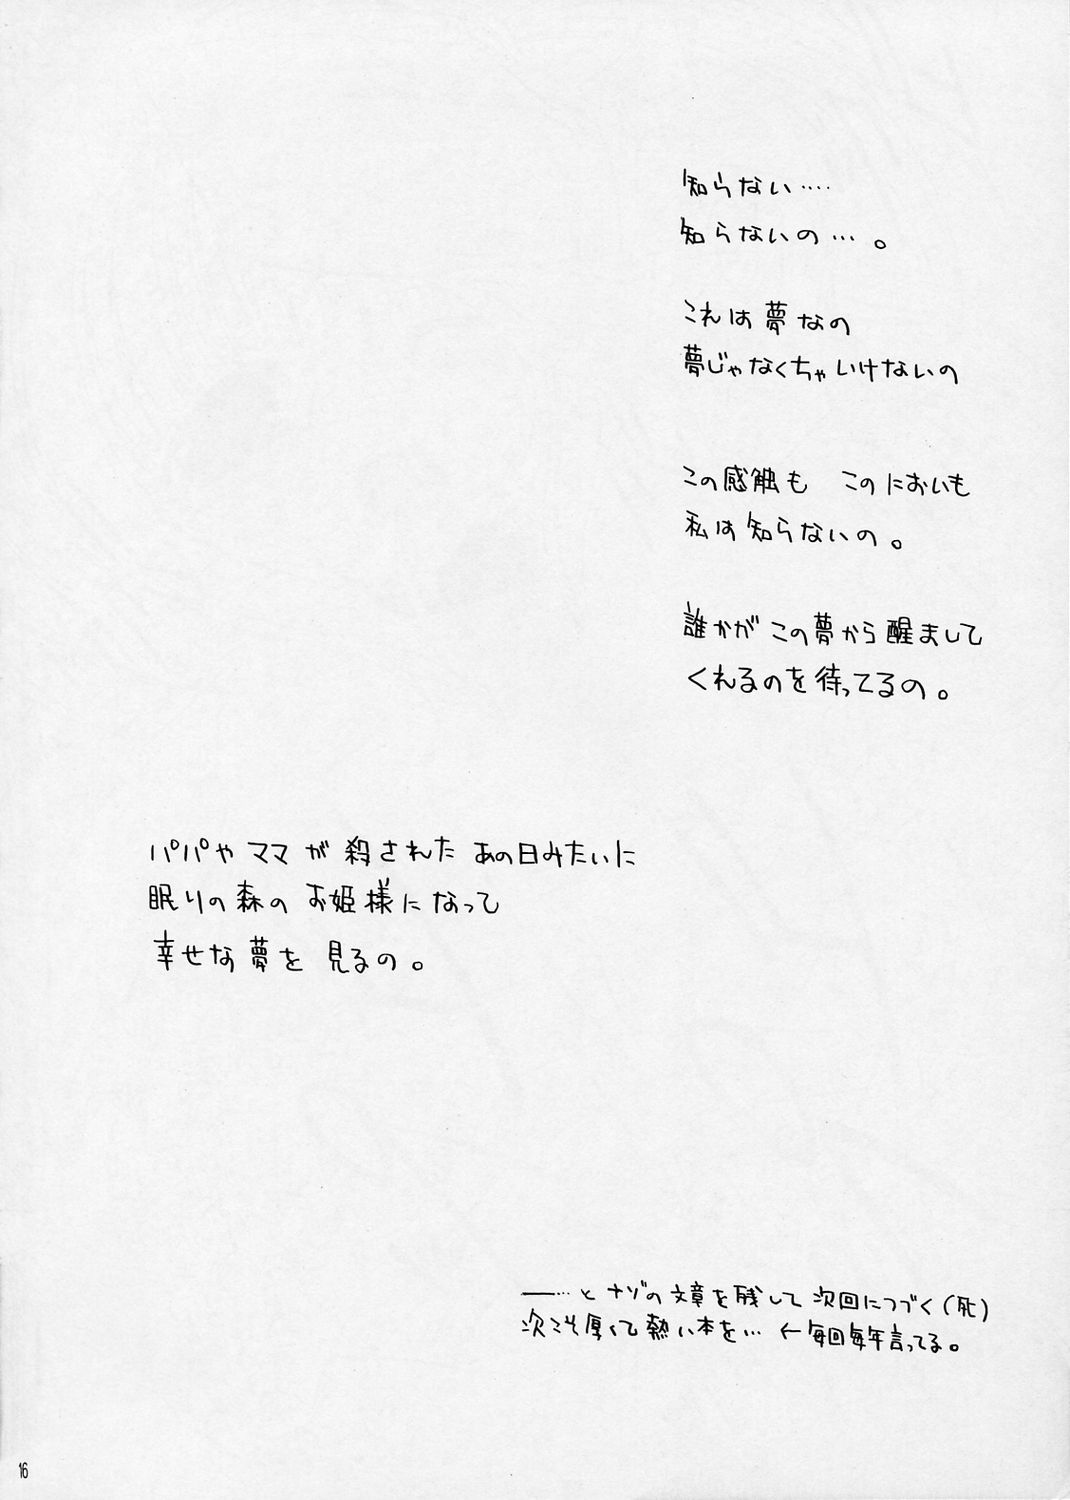 知らない‥‥
知らないの…。
これは夢なの
夢じゃなくちゃいけないの
この感触も このにおいも
私は知らないの。
誰かがこの夢から醒まして
くれるのを待ってるの。
パパやママが殺されたあの日みたいに
眠りの森のお姫様になって
幸せな夢を見るの。
――…とナゾの文章を残して次回につづく(死)
次こそ厚くて熱い本を… ←毎回毎年言ってる。
16